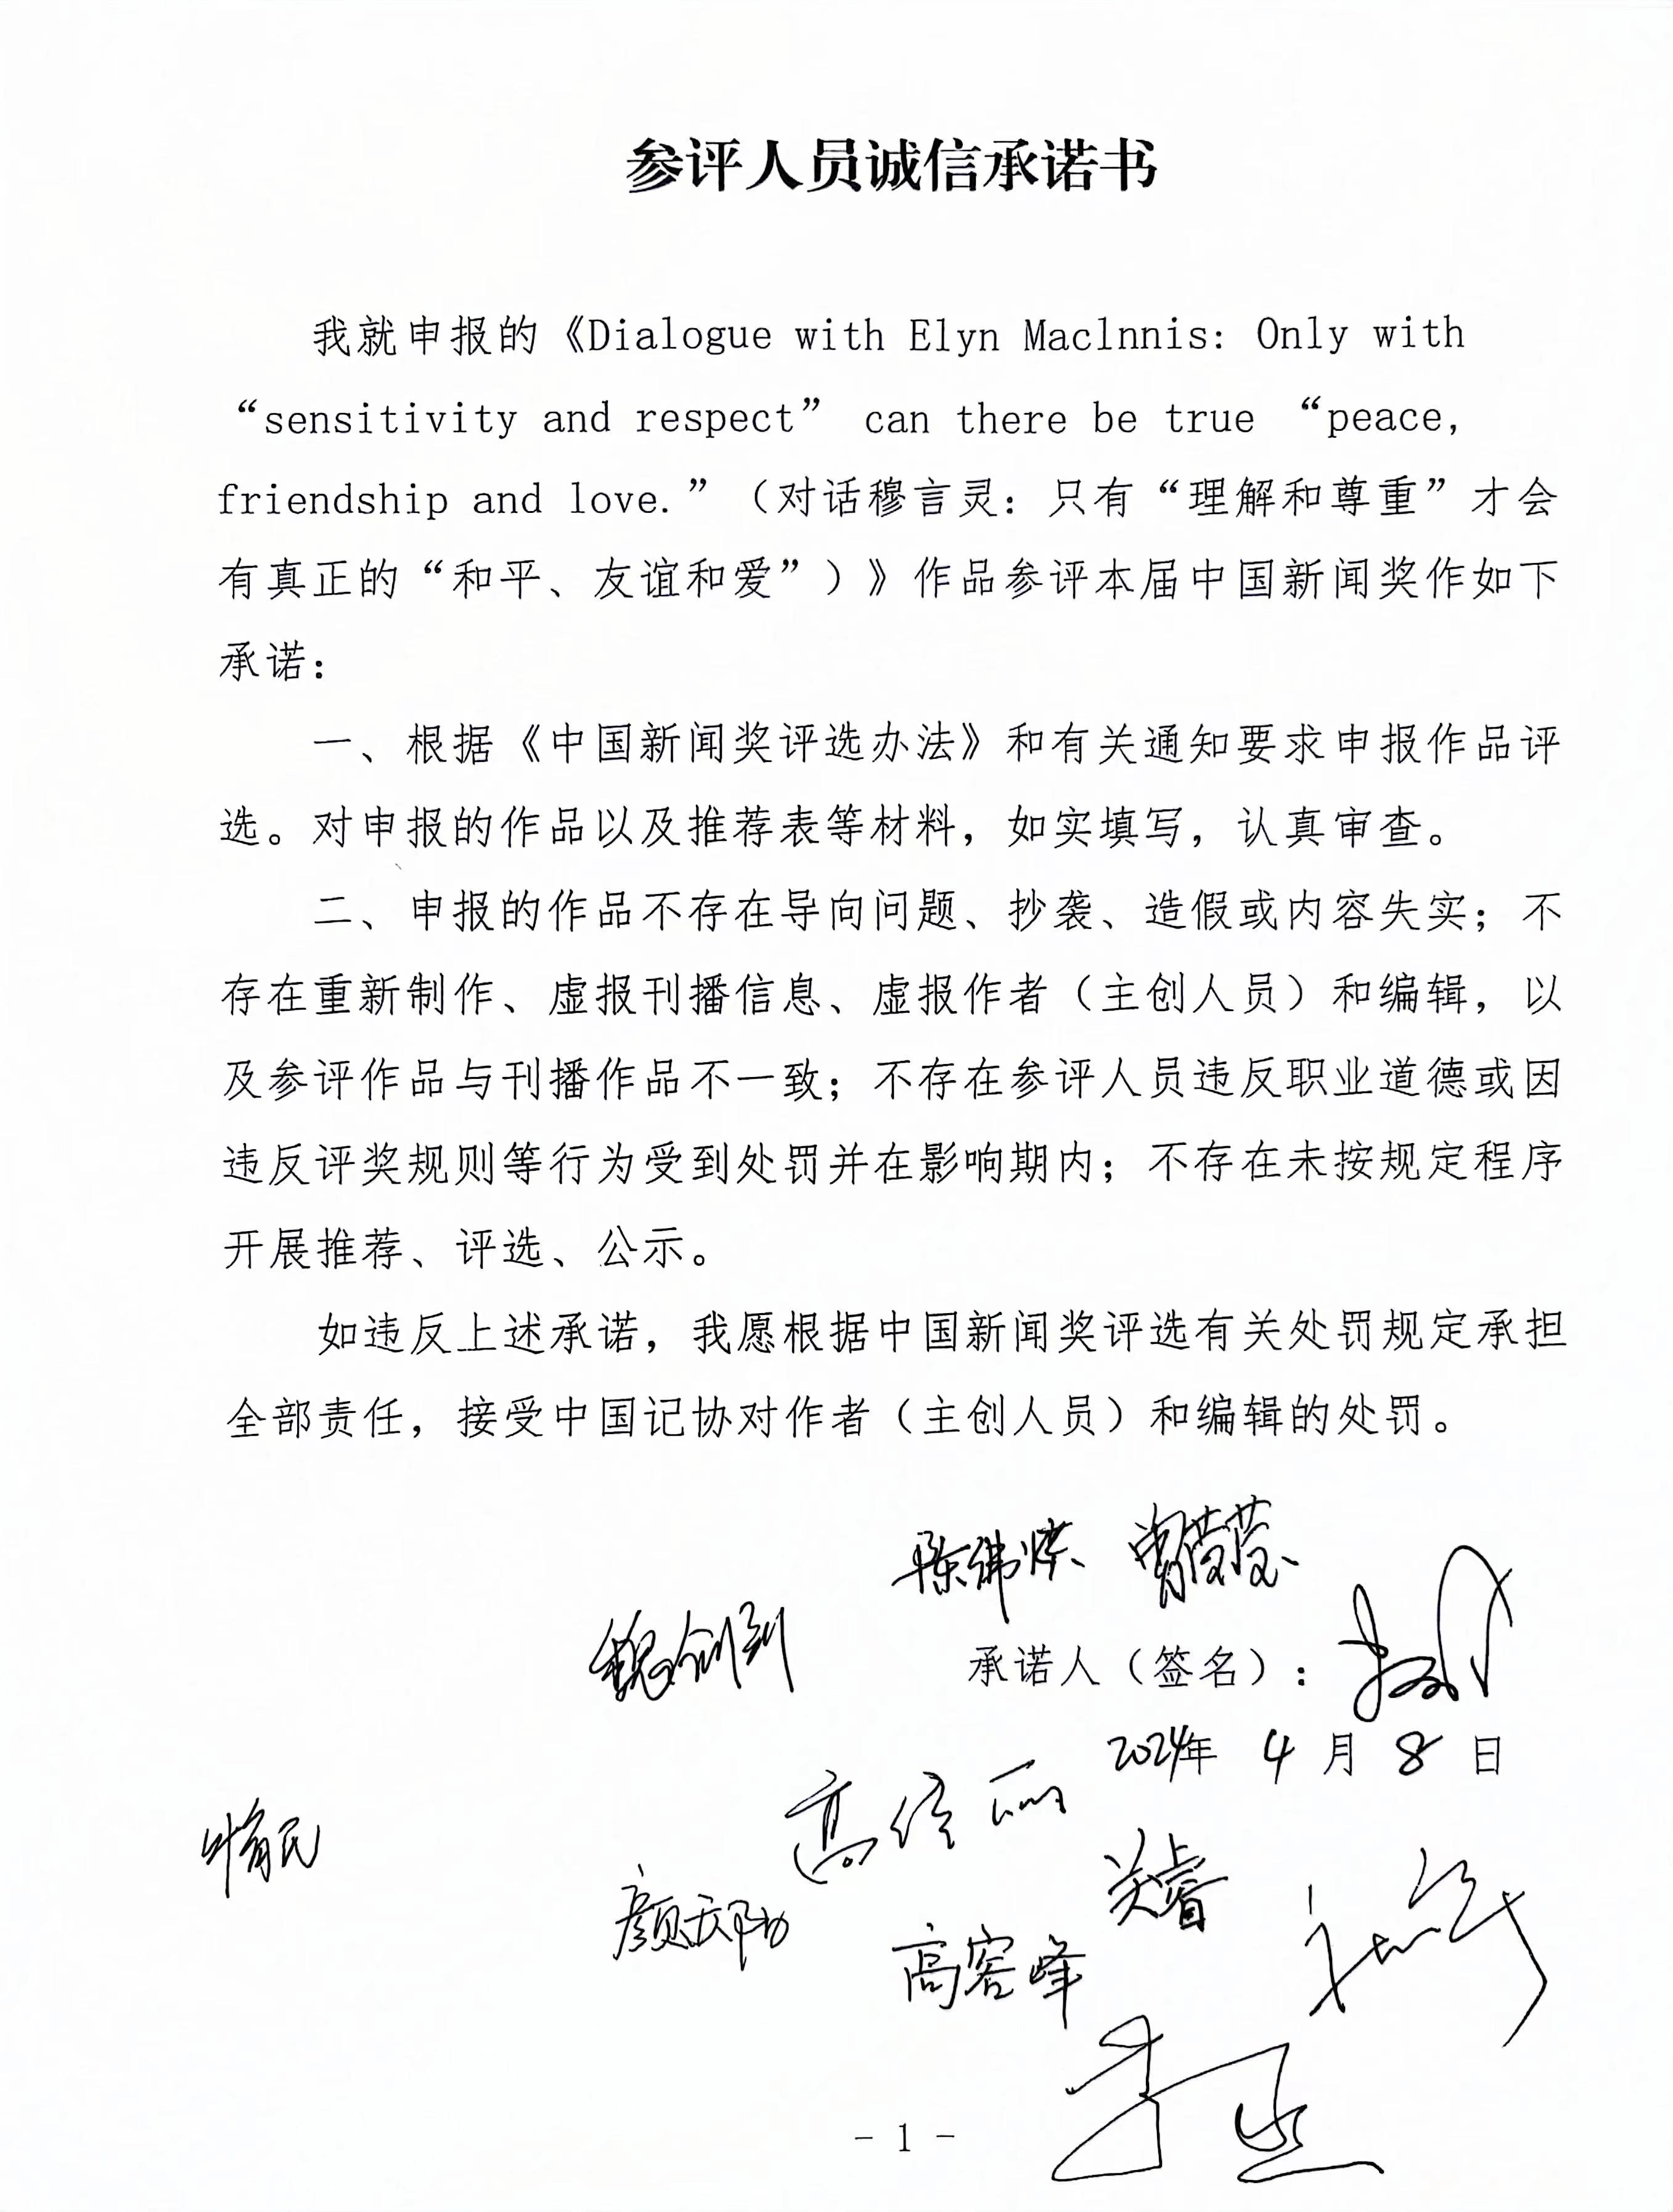 参评人员诚信承诺书
我就申报的《Dialogue with Elyn Maclnnis: Only with
“sensitivity and respect” can there be true “peace,
friendship and love.”（对话穆言灵：只有“理解和尊重”才会
有真正的“和平、友谊和爱”）》作品参评本届中国新闻奖作如下
承诺：
一、根据《中国新闻奖评选办法》和有关通知要求申报作品评
选。对申报的作品以及推荐表等材料，如实填写，认真审查。
二、申报的作品不存在导向问题、抄袭、造假或内容失实；不
存在重新制作、虚报刊播信息、虚报作者（主创人员）和编辑，以
及参评作品与刊播作品不一致；不存在参评人员违反职业道德或因
违反评奖规则等行为受到处罚并在影响期内；不存在未按规定程序
开展推荐、评选、公示。
如违反上述承诺，我愿根据中国新闻奖评选有关处罚规定承担
全部责任，接受中国记协对作者（主创人员）和编辑的处罚。
承诺人（签名）：
2024年 4 月 8 日
高容峰
- 1 -